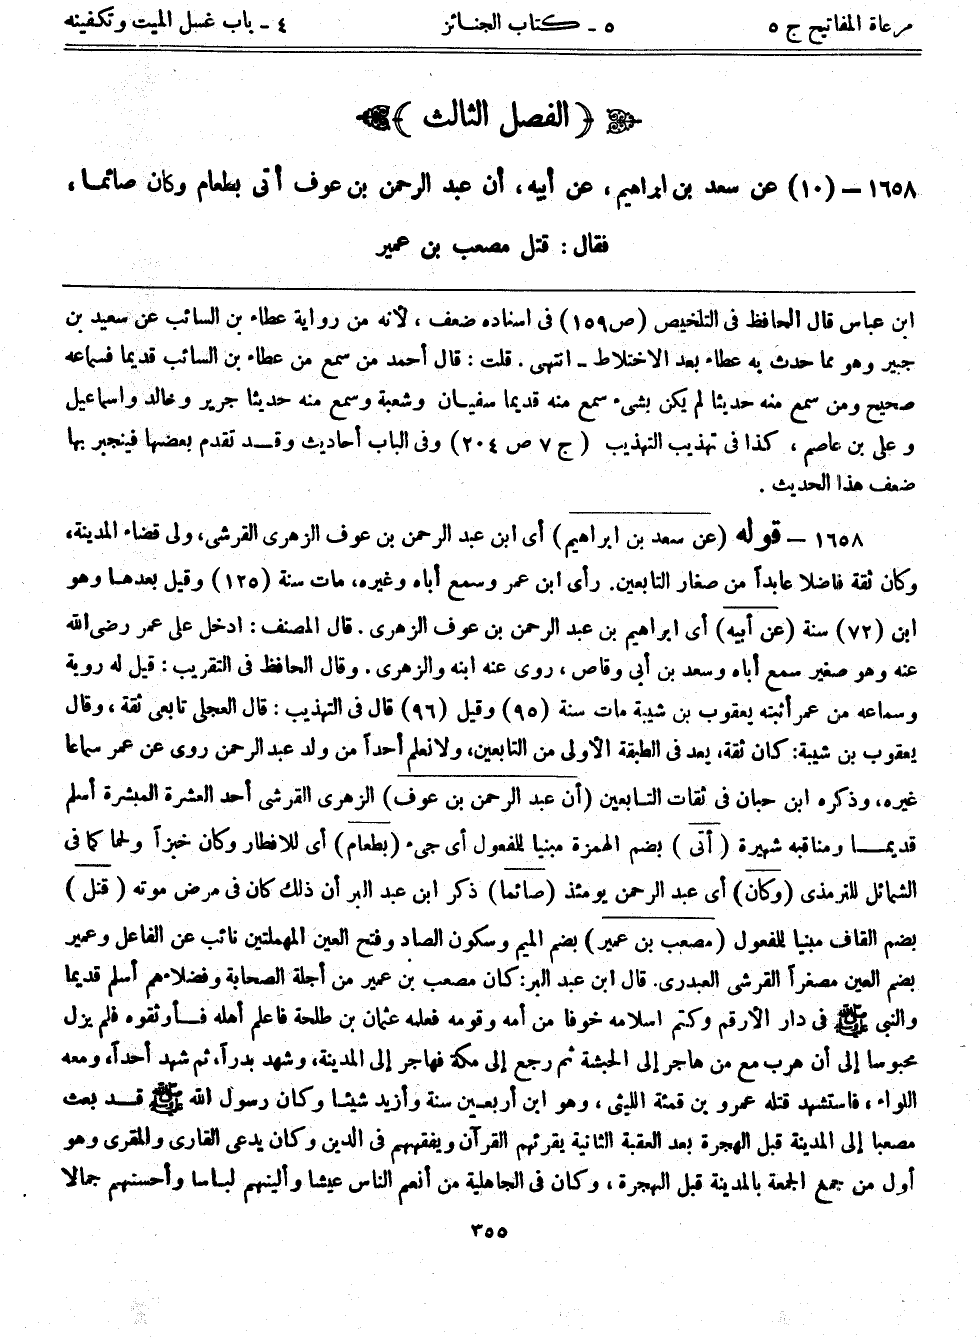 مرعاة المفاتيح ج ٥ ٥ ـ كتاب الجنائز ٤ ـ باب غسل الميت وتكفينه
( الفصل الثالث )
١٦٥٨ – (١٠) عن سعد بن ابراهيم، عن أبيه، أن عبد الرحمن بن عوف أتى بطعام وكان صائما،
فقال: قتل مصعب بن عمير
ابن عباس قال الحافظ فى التلخيص (ص١٥٩) فى اسناده ضعف، لأنه من رواية عطاء بن السائب عن سعيد بن
جبير وهو مما حدث به عطاء بعد الاختلاط ـ انتهى. قلت: قال أحمد من سمع من عطاء بن السائب قديما فسماعه
صحيح ومن سمع منه حديثا لم يكن بشىء سمع منه قديما سفيان وشعبة وسمع منه حديثا جرير وخالد واسماعيل
وعلى بن عاصم، كذا فى تهذيب التهذيب (ج ٧ ص ٢٠٤) وفى الباب أحاديث وقد تقدم بعضها فينجبر بها
ضعف هذا الحديث.
١٦٥٨ – قوله (عن سعد بن ابراهيم) أى ابن عبد الرحمن بن عوف الزهرى القرشى، ولى قضاء المدينة،
وكان ثقة فاضلا عابداً من صغار التابعين. رأى ابن عمر وسمع أباه وغيره، مات سنة (١٢٥) وقيل بعدها وهو
ابن (٧٢) سنة (عن أبيه) أى ابراهيم بن عبد الرحمن بن عوف الزهرى. قال المصنف: ادخل على عمر رضى الله
عنه وهو صغير سمع أباه وسعد بن أبى وقاص، روى عنه ابنه والزهرى. وقال الحافظ فى التقريب: قيل له روية
وسماعه من عمر أثبته يعقوب بن شيبة مات سنة (٩٥) وقيل (٩٦) قال فى التهذيب: قال العجلى تابعى ثقة، وقال
يعقوب بن شيبة: كان ثقة، يعد فى الطبقة الأولى من التابعين، ولانعلم أحداً من ولد عبد الرحمن روى عن عمر سماعا
غيره، وذكره ابن حبان فى ثقات التابعين (أن عبد الرحمن بن عوف) الزهرى القرشى أحد العشرة المبشرة أسلم
قديما ومناقبه شهيرة (أتى) بضم الهمزة مبنيا للفعول أى جىء (بطعام) أى للافطار وكان خبزاً ولحما كما فى
الشمائل للترمذى (وكان) أى عبد الرحمن يومئذ (صائما) ذكر ابن عبد البر أن ذلك كان فى مرض موته (قتل)
بضم القاف مبنيا للفعول (مصعب بن عمير) بضم الميم وسكون الصاد وفتح العين المهملتين نائب عن الفاعل وعمير
بضم العين مصغراً القرشى العبدرى. قال ابن عبد البر: كان مصعب بن عمير من أجلة الصحابة وفضلاءهم أسلم قديما
والنبى ﷺ فى دار الأرقم وكتم اسلامه خوفا من أمه وقومه فعلمه عثمان بن طلحة فاعلم أهله فأوثقوه فلم يزل
محبوسا إلى أن هرب مع من هاجر إلى الحبشة ثم رجع إلى مكة فهاجر إلى المدينة، وشهد بدراً، ثم شهد أحداً، ومعه
اللواء، فاستشهد قتله عمرو بن قمئة الليثى، وهو ابن أربعين سنة وأزيد شيئا وكان رسول الله ﷺ قد بعث
مصعبا إلى المدينة قبل الهجرة بعد العقبة الثانية يقرئهم القرآن ويفقههم فى الدين وكان يدعى القارى والمقرى وهو
أول من جمع الجمعة بالمدينة قبل الهجرة، وكان فى الجاهلية من أنعم الناس عيشا وألينهم لباسا وأحسنهم جمالا
٣٥٥